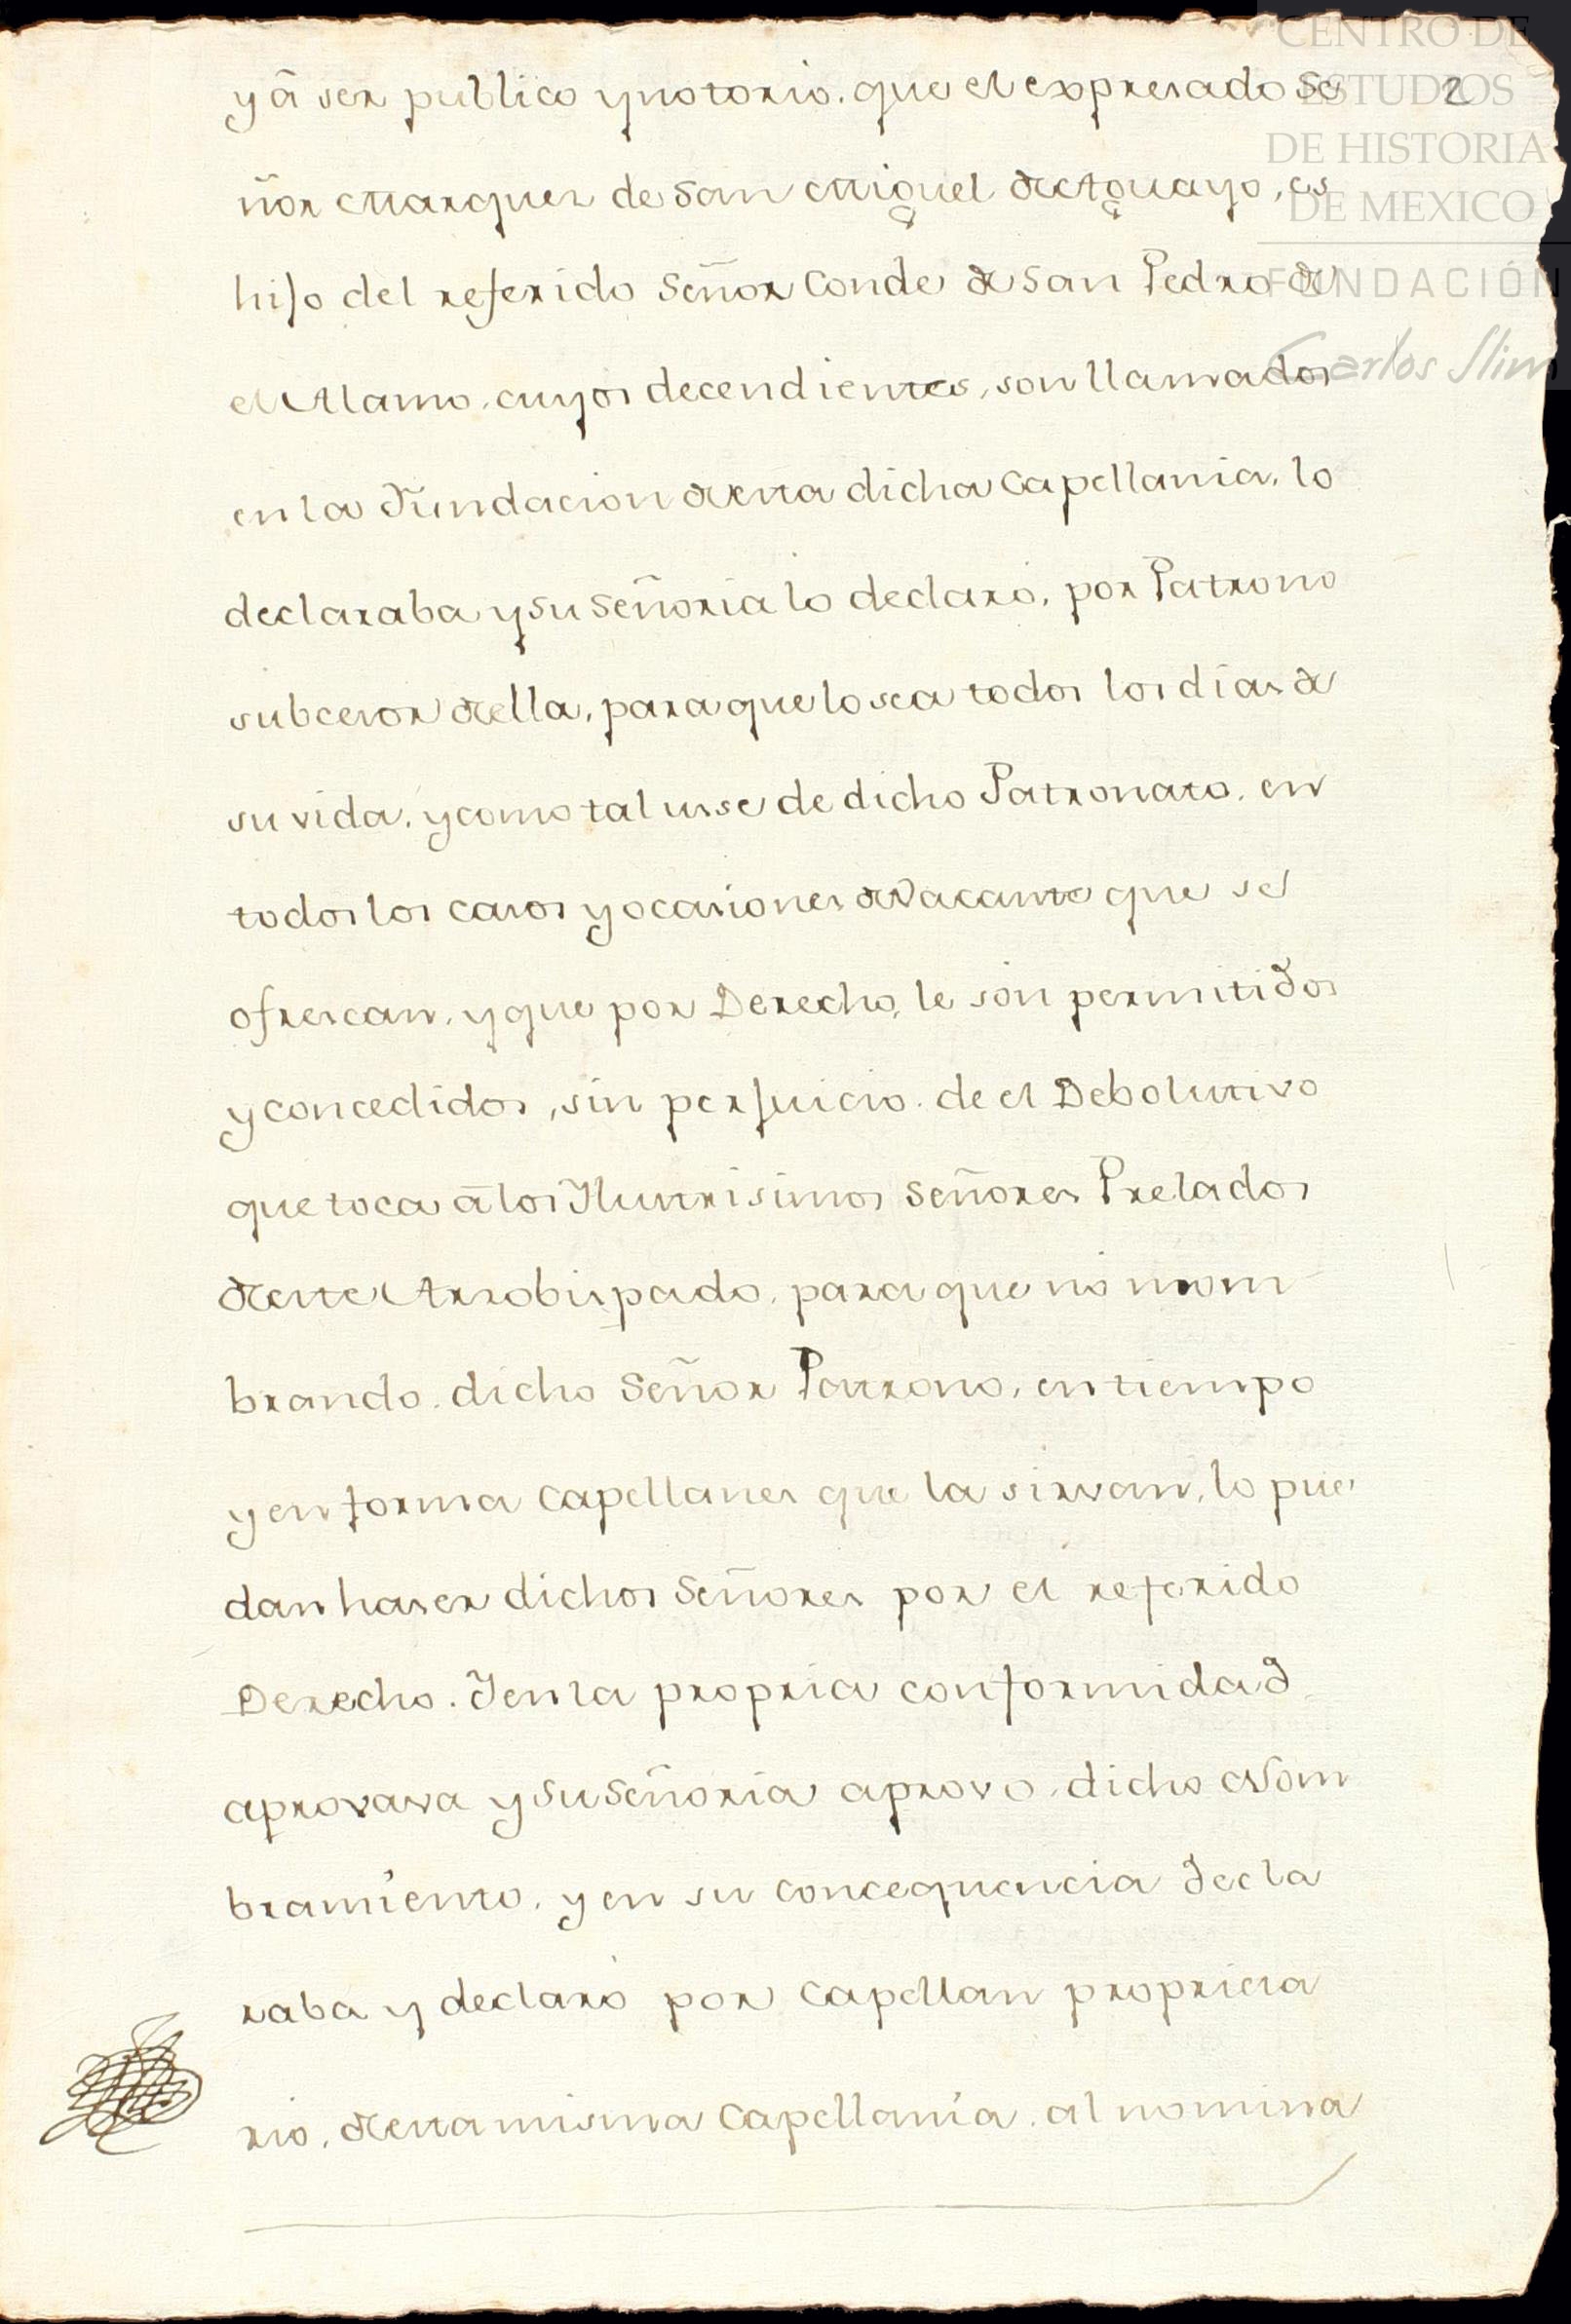 CENTRO DE
ESTUDIOS
DE HISTORIA
DE MEXICO
FUNDACIÓN
Carlos Slim
2
y â ser publico y notorio. que el expresado Se
ñor Marques de San Miguel de Aguayo, es
hijo del referido Señor Conde de San Pedro de
el Alamo. cuyos decendientes, son llamados
en la Fundacion de esta dicha Capellania, lo
declaraba y su Señoria lo declaró, por Patrono
subcesor de ella, para que lo sea todos los dias de
su vida. y como tal usse de dicho Patronato. en
todos los casos y ocasiones de Vacante que se
ofrescan, y que por Derecho, le són permitidos
y concedidos, sin perjuicio de el Debolutivo
que toca â los Ilustrisimos Señores Prelados
de este Arzobispado, para que nó nom
brando. dicho Señor Patrono, en tiempo
y en forma Capellanes que la sirvan, lo pue
dan haser dichos Señores por el referido
Derecho. Y en la propria conformidad
aprovava y su Señoria aprovó. dicho Nom
bramiento. y en su concequencia decla
raba y declaró por Capellan proprieta
rio, de esta misma Capellanía. al nomina